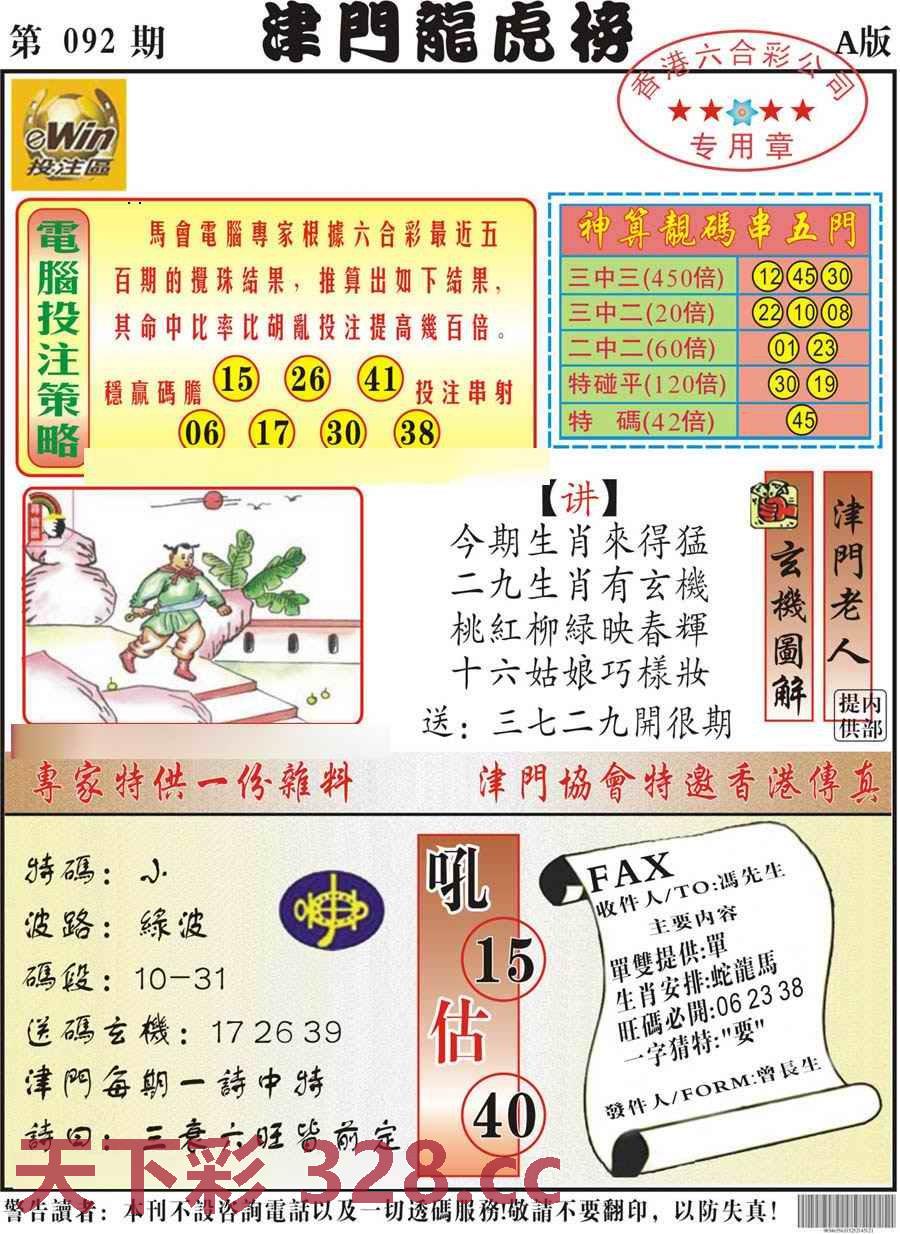 第 092 期
津門龍虎榜
A版
香港六合彩公司
专用章
eWin
投注區
電腦投注策略
馬會電腦專家根據六合彩最近五
百期的攪珠結果，推算出如下結果，
其命中比率比胡亂投注提高幾百倍。
穩贏碼膽 15 26 41 投注串射
06 17 30 38
神算靚碼串五門
三中三(450倍) 12 45 30
三中二(20倍) 22 10 08
二中二(60倍) 01 23
特碰平(120倍) 30 19
特 碼(42倍) 45
【讲】
今期生肖來得猛
二九生肖有玄機
桃紅柳緑映春輝
十六姑娘巧樣妝
送：三七二九開很期
玄機圖解
津門老人
内部提供
專家特供一份雜料
津門協會特邀香港傳真
特碼：小
波路：綠波
碼段：10-31
送碼玄機：17 26 39
津門每期一詩中特
詩曰：三衰六旺皆前定
吼
15
估
40
FAX
收件人/TO:馮先生
主要内容
單雙提供:單
生肖安排:蛇龍馬
旺碼必開:06 23 38
一字猜特:"要"
發件人/FORM:曾長生
天下彩 328.cc
警告讀者：本刊不設咨詢電話以及一切透碼服務!敬請不要翻印，以防失真！